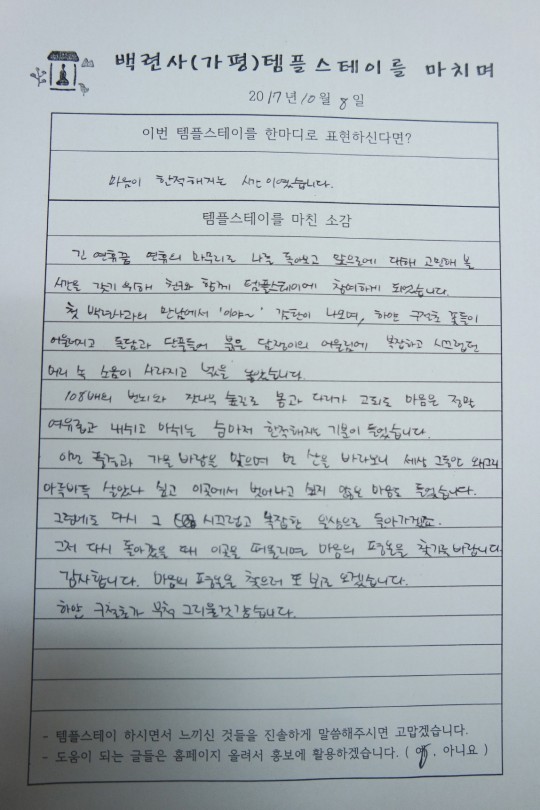 백련사(가평)템플스테이를 마치며
2017년 10월 8일
이번 템플스테이를 한마디로 표현하신다면?
마음이 한적해지는 시간이였습니다.
템플스테이를 마친 소감
긴 연휴끝 연휴의 마무리로 나를 돌아보고 앞으로에 대해 고민해 볼
시간을 갖기 위해 친구와 함께 템플스테이에 참여하게 되었습니다.
첫 백련사와의 만남에서 '이야~' 감탄이 나오며, 하얀 구절초 꽃들이
어우러지고 돌담과 단풍들어 붉은 담쟁이의 어울림에 복잡하고 시끄럽던
머리 속 소음이 사라지고 넋을 놓았습니다.
108배의 번뇌와 잣나무 숲길로 몸과 다리가 고되도 마음은 정말
여유롭고 내쉬고 마쉬는 숨마저 한적해지는 기분이 들었습니다.
이런 풍경과 가을 바람을 맞으며 먼 산을 바라보니 세상 그동안 왜그리
아둥바둥 살았나 싶고 이곳에서 벗어나고 싶지 않은 마음도 들었습니다.
그럼에도 다시 그 시끄럽고 복잡한 일상으로 돌아가겠죠.
그저 다시 돌아갔을 때 이곳을 떠올리며 마음의 평온을 찾기를 바랍니다
감사합니다. 마음의 평온을 찾으러 또 뵈러 오겠습니다.
하얀 구절초가 부쩍 그리울것 같습니다.
- 템플스테이 하시면서 느끼신 것들을 진솔하게 말씀해주시면 고맙겠습니다.
- 도움이 되는 글들은 홈페이지 올려서 홍보에 활용하겠습니다. ( 예, 아니요 )